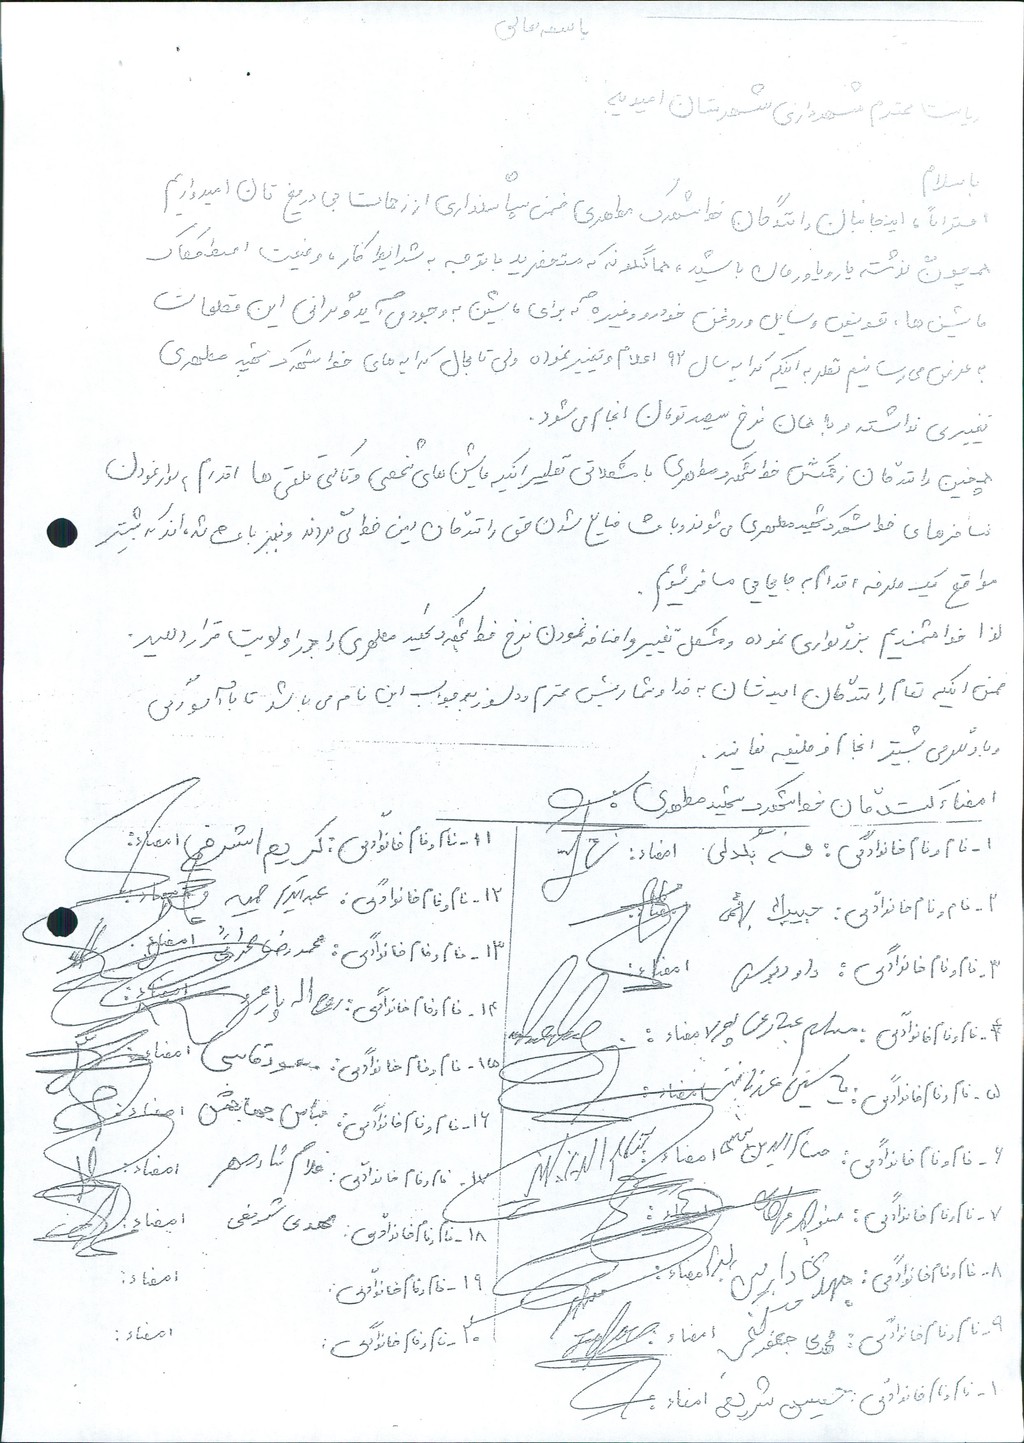 باسمه تعالی
ریاست محترم شهرداری شهرستان امیدیه
با سلام
احتراماً، اینجانبان رانندگان خط شهرک مطهری ضمن سپاسگذاری از زحمات بی دریغ تان امیدواریم
همچون گذشته یار و یاورمان باشید، همانگونه که مستحضرید با توجه به شرایط کار، وضعیت استهلاک
ماشین ها، تعویض وسایل و روغن خودرو وغیره که برای ماشین به وجود می آید و گرانی این قطعات
به عرض می رسانیم نظر به اینکه کرایه سال ۹۲ اعلام و تغییر نموده ولی تا بحال کرایه های خط شهرک شهید مطهری
تغییری نداشته و با همان نرخ سیصد تومان انجام می شود.
همچنین رانندگان زحمتکش خط شهرک مطهری با مشکلاتی نظیر اینکه ماشین های شخصی و تاکسی تلفنی ها اقدام به سوار نمودن
مسافرهای خط شهرک شهید مطهری می شوند و باعث ضایع شدن حق رانندگان این خط می گردند و نیز باعث شده اند که بیشتر
مواقع یک طرفه اقدام به جابجایی مسافر شویم.
لذا خواهشمندیم بزرگواری نموده و مشکل تغییر و اضافه نمودن نرخ خط شهرک شهید مطهری را جزء اولویت قرار دهید.
ضمن اینکه تمام رانندگان امیدشان به خدا و شما رییس محترم و دلسوز به جواب این نامه می باشد تا با آسودگی
و با دلگرمی بیشتر انجام وظیفه نمایند.
امضاء کنندگان خط شهرک شهید مطهری:
۱- نام و نام خانوادگی: بگدلی امضاء:
۲- نام و نام خانوادگی: حبیب اله امضاء:
۳- نام و نام خانوادگی: داود امضاء:
۴- نام و نام خانوادگی: امضاء:
۵- نام و نام خانوادگی: امضاء:
۶- نام و نام خانوادگی: حسام الدین امضاء:
۷- نام و نام خانوادگی: امضاء:
۸- نام و نام خانوادگی: مهدی امضاء:
۹- نام و نام خانوادگی: مهدی جعفر امضاء:
۱۰- نام و نام خانوادگی: حسین شریفی امضاء:
۱۱- نام و نام خانوادگی: کریم اشرفی امضاء:
۱۲- نام و نام خانوادگی: امضاء:
۱۳- نام و نام خانوادگی: محمدرضا امضاء:
۱۴- نام و نام خانوادگی: امضاء:
۱۵- نام و نام خانوادگی: مسعود قاسمی امضاء:
۱۶- نام و نام خانوادگی: عباس جهانبخش امضاء:
۱۷- نام و نام خانوادگی: غلام امضاء:
۱۸- نام و نام خانوادگی: مهدی شریفی امضاء:
۱۹- نام و نام خانوادگی: امضاء:
۲۰- نام و نام خانوادگی: امضاء: